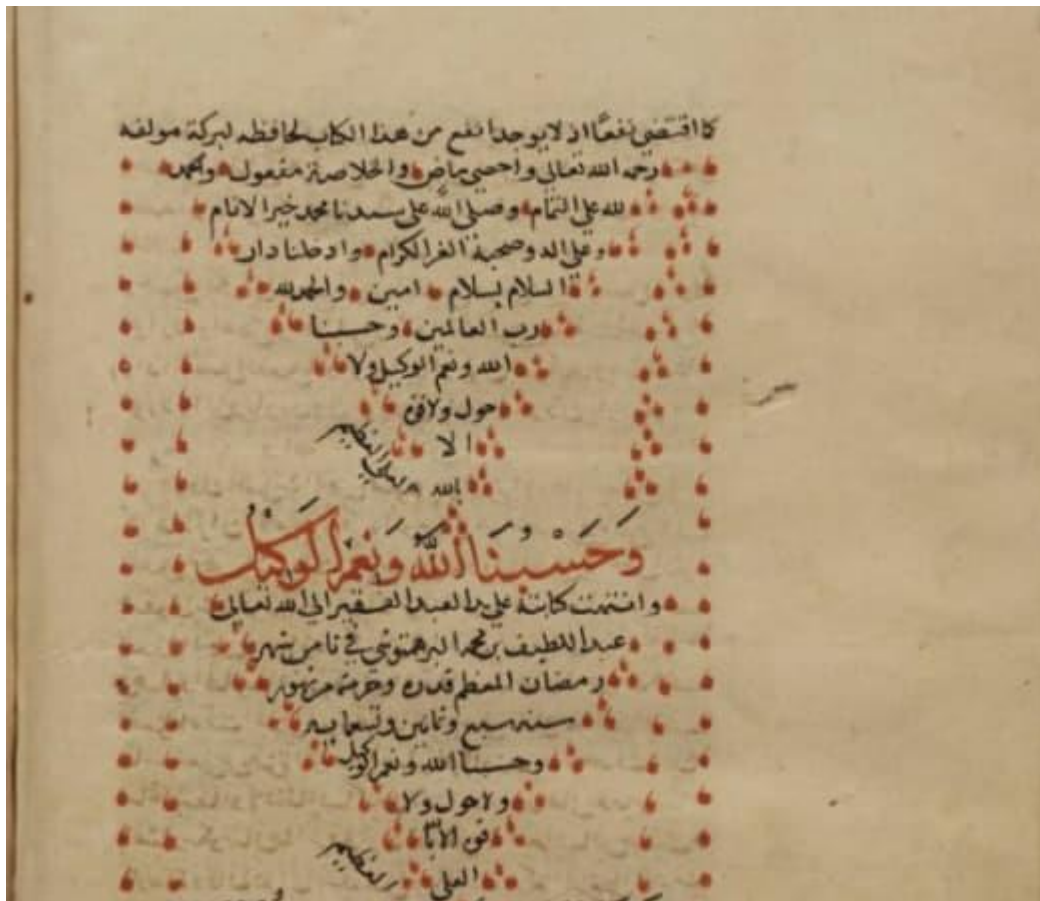 كما اقتضى نفعًا اذ لا يوجد انفع من هذا الكتاب لحافظه لبركة مولفه
رحمه الله تعالى واحصى ماض والخلاصة مفعول والحمد
لله على التمام وصلى الله على سيدنا محمد خير الانام
وعلى اله وصحبه الغر الكرام وادخلنا دار
السلام بسلام امين والحمد لله
رب العالمين وحسبنا
الله ونعم الوكيل ولا
حول ولا قوة
الا
بالله العلي العظيم
وَحَسْبُنَا اللَّهُ وَنَعْمَ الْوَكِيلُ
وانتهت كتابته على يد العبد الفقير الى الله تعالى
عبد اللطيف بن محمد البرهمتوشي في ثامن شهر
رمضان المعظم قدره وحرمته من شهور
سنه سبع وثمانين وتسعمايه
وحسبنا الله ونعم الوكيل
ولا حول ولا
قوة الا بالله
العلي العظيم